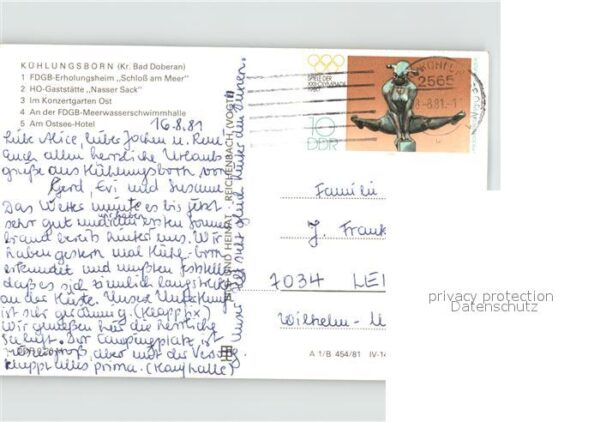 KÜHLUNGSBORN (Kr. Bad Doberan)
1 FDGB-Erholungsheim „Schloß am Meer"
2 HO-Gaststätte „Nasser Sack"
3 Im Konzertgarten Ost
4 An der FDGB-Meerwasserschwimmhalle
5 Am Ostsee-Hotel
16.8.81
Liebe Alice, lieber Jochen u. René
auch allen herrliche Urlaubs
grüße aus Kühlungsborn von
Gerd, Evi und Susanne
Das Wetter meinte es bis jetzt
sehr gut und den ersten Sonnen
brand bereits hinter uns. Wir
haben gestern mal Kühl.-born
erkundet und mußten feststellen
daß es sich ziemlich langstreckt
an der Küste. Unsere Unterkunft
ist sehr geräumig. (Klappfix)
Wir genießen hier die herrliche
Seeluft. Der Campingplatz ist
riesengroß, aber mit der Vers.
klappt alles prima. (Kaufhalle)
Unser Zelt steht gleich hinter den Dünen.
BILD UND HEIMAT REICHENBACH (VOGTL)
SPIELE DER
XXII. OLYMPIADE
1980
10
DDR
2565
-8.81.-1
Familie
J. Frank
7034 LEI
Wilhelm-
A 1/B 454/81 IV-14
privacy protection
Datenschutz